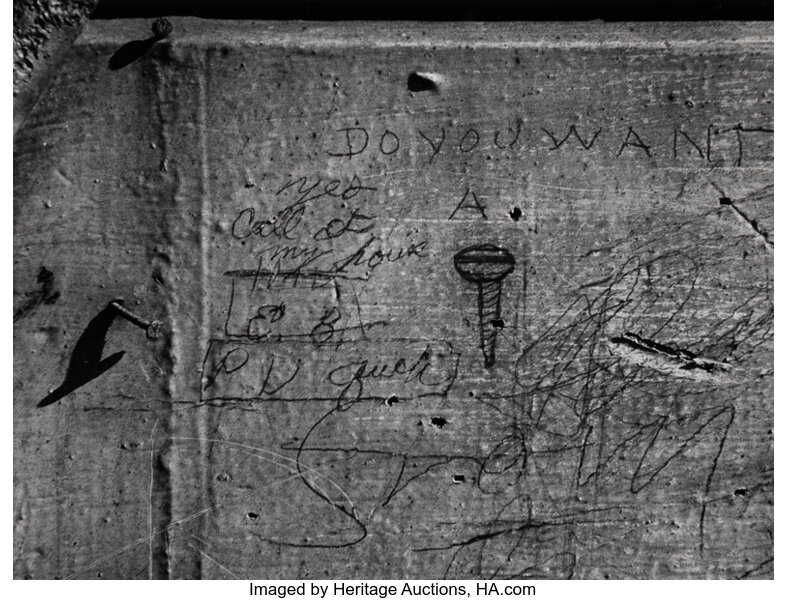 DO YOU WANT
A
yes
Call at
my house
E. B.
P V quick
Imaged by Heritage Auctions, HA.com